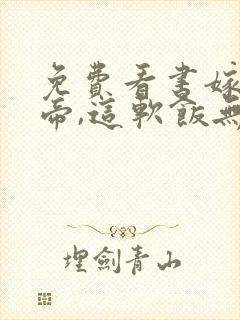 免費看書嫁
帝,這軟飯無
埋劍青山